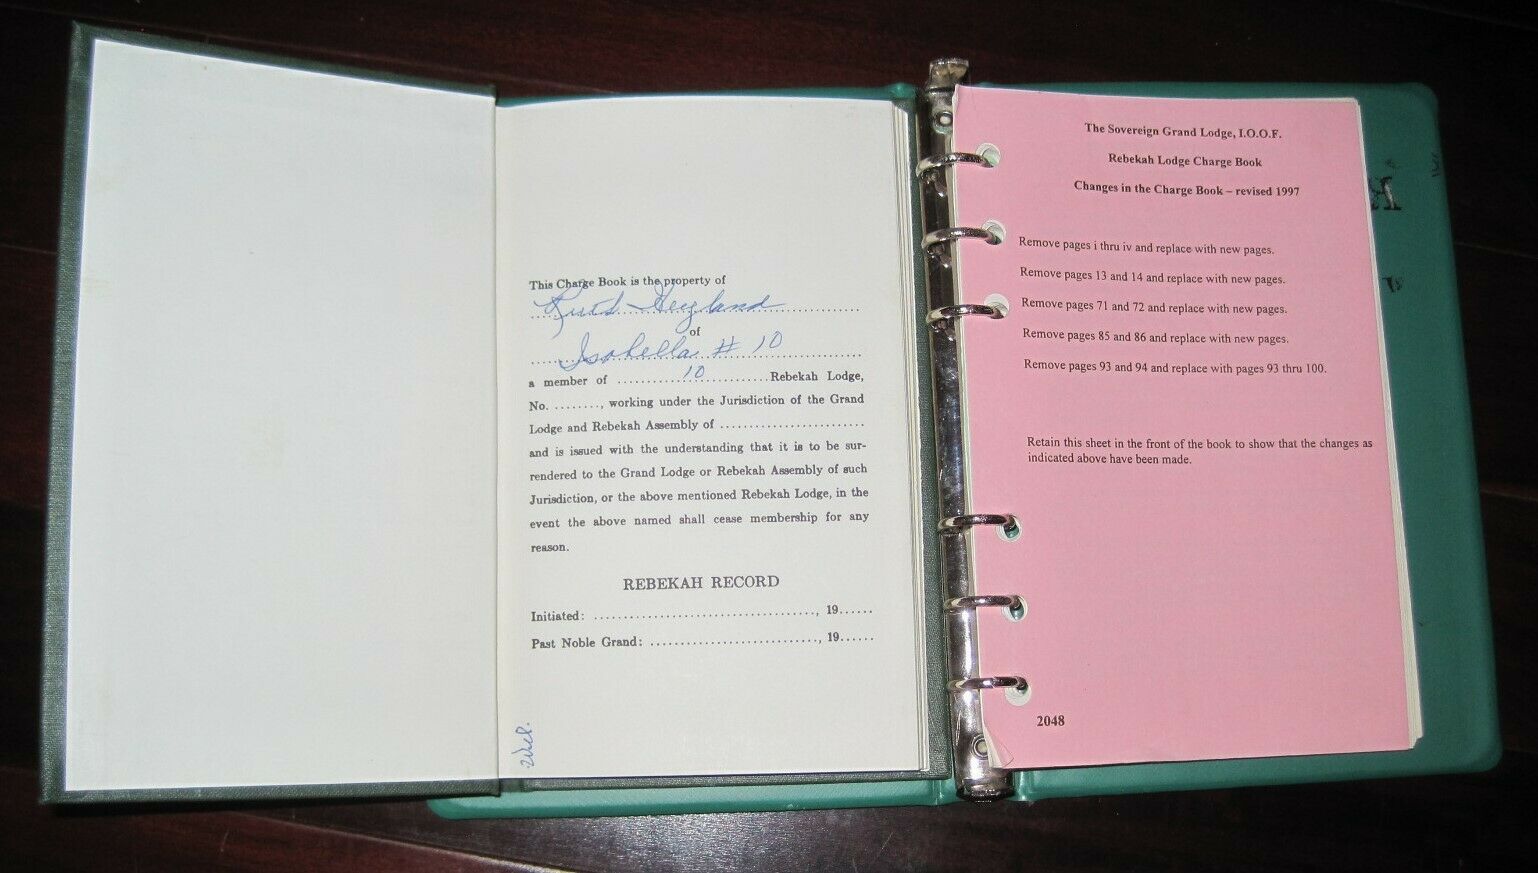 This Charge Book is the property of
Ruth
of
Isabella # 10
a member of ..........10..........Rebekah Lodge,
No. ........, working under the Jurisdiction of the Grand
Lodge and Rebekah Assembly of ........................
and is issued with the understanding that it is to be sur-
rendered to the Grand Lodge or Rebekah Assembly of such
Jurisdiction, or the above mentioned Rebekah Lodge, in the
event the above named shall cease membership for any
reason.
REBEKAH RECORD
Initiated: ....................................., 19......
Past Noble Grand: ............................, 19......
The Sovereign Grand Lodge, I.O.O.F.
Rebekah Lodge Charge Book
Changes in the Charge Book – revised 1997
Remove pages i thru iv and replace with new pages.
Remove pages 13 and 14 and replace with new pages.
Remove pages 71 and 72 and replace with new pages.
Remove pages 85 and 86 and replace with new pages.
Remove pages 93 and 94 and replace with pages 93 thru 100.
Retain this sheet in the front of the book to show that the changes as
indicated above have been made.
2048